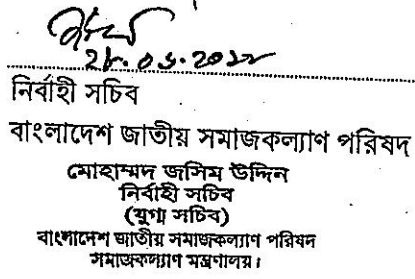 নির্বাহী সচিব
বাংলাদেশ জাতীয় সমাজকল্যাণ পরিষদ
মোহাম্মদ জসিম উদ্দিন
নির্বাহী সচিব
(যুগ্ম সচিব)
বাংলাদেশ জাতীয় সমাজকল্যাণ পরিষদ
সমাজকল্যাণ মন্ত্রণালয়।